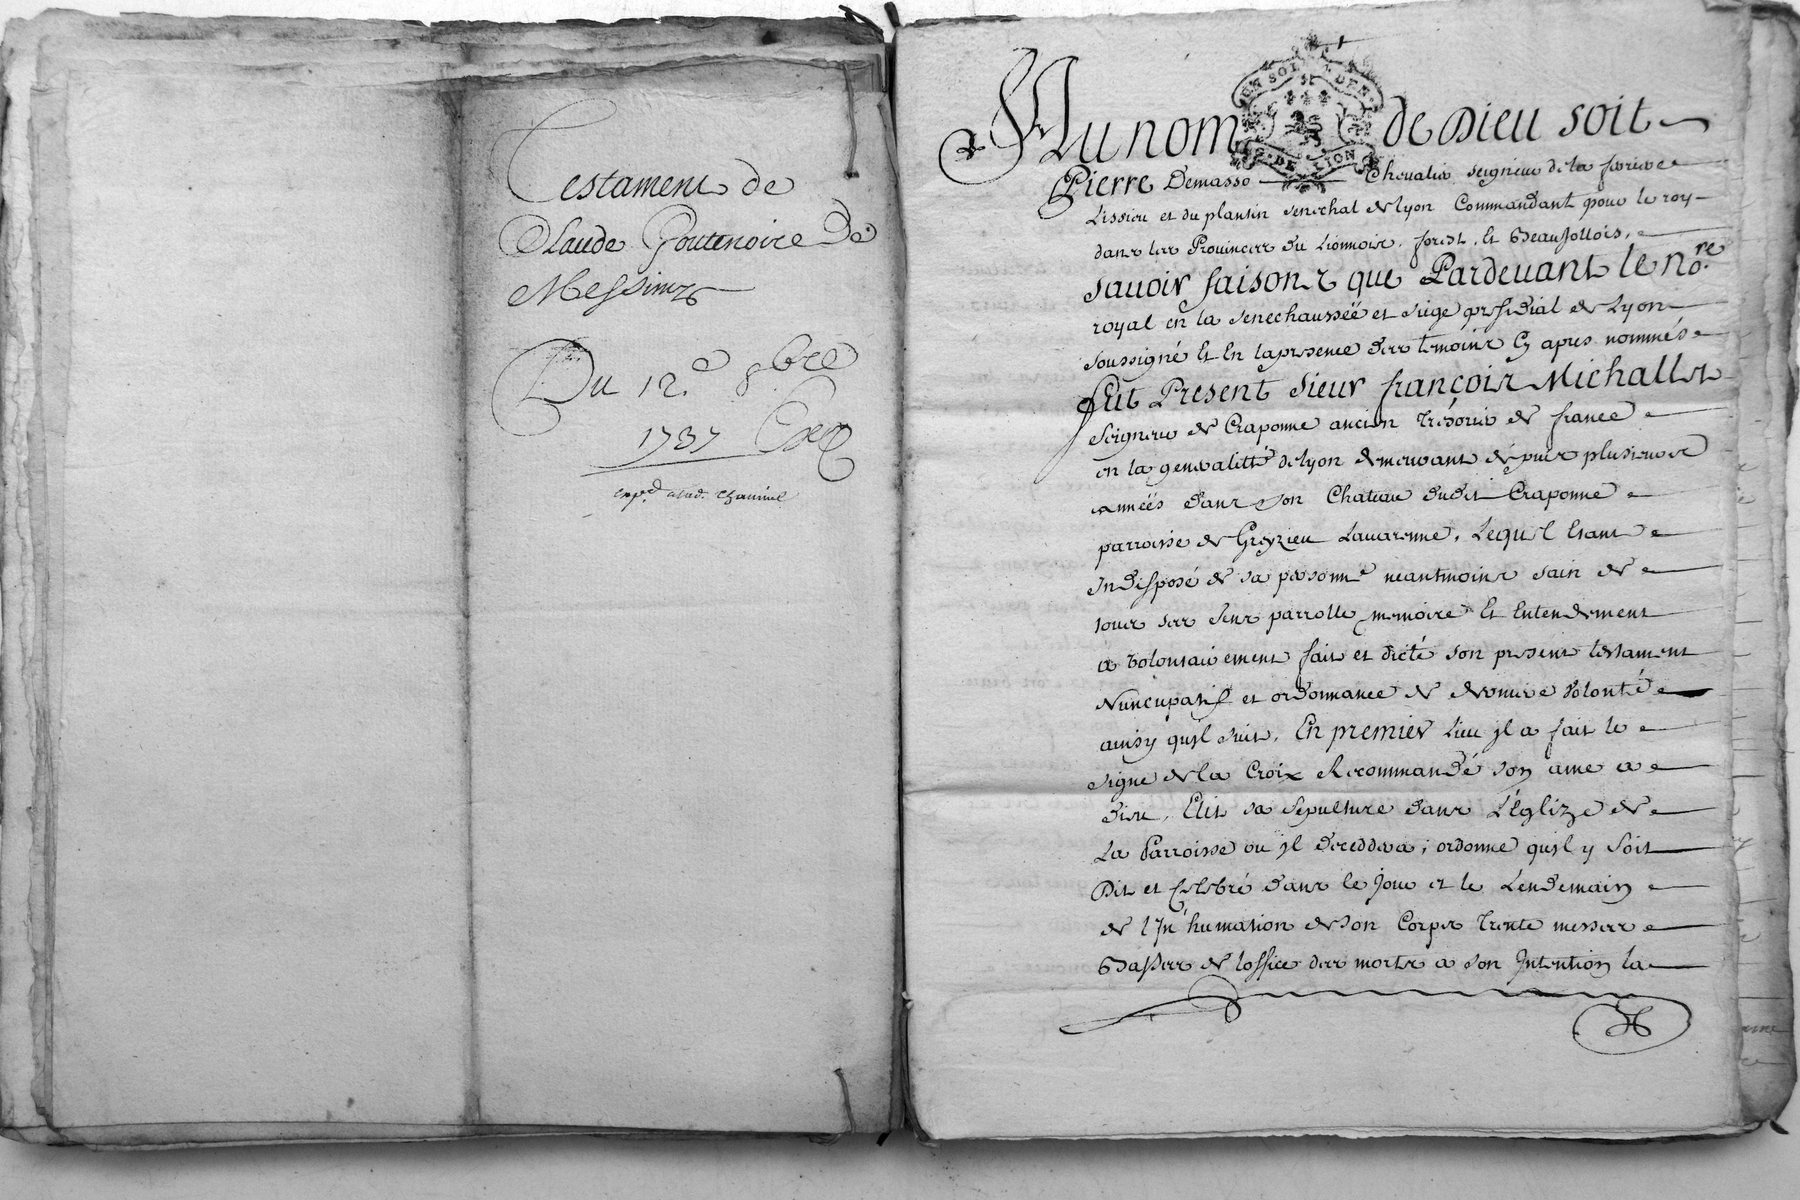 Testament de
Claude Goutenoire De
Messimy
Du 12.e 8bre
1737
UN SOL DEN
G. DE LION
Au nom de Dieu soit
Pierre Demasso Chevalier seigneur de la ferriere
Lissieu et du plantin senechal de lyon Commandant pour le roy
dans les Provinces du Lionnois, forest, Et Beaujollois,
savoir faisons que Pardevant le no.re
royal en la senechaussée et siege presidial de Lyon
soussigné Et En la presence des temoins Cy apres nommés
fut Present sieur françois Michallet
seigneur de Craponne ancien tresorier de france
en la generalitté de lyon demeurant depuis plusieurs
années dans son Chateau dudit Craponne
parroisse de Greyzieu Lavarenne, Lequel Etant
Indisposé de sa personne neantmoins sain de
tous ses sens parrolle memoire Et Entendement
a volontairement fait et dicté son present testament
Nuncupatif et ordonnance de derniere volonté
ainsy qu'jl suit, En premier lieu jl a fait le
signe de la Croix Recommandé son ame a
dieu, Elit sa sepulture dans L'églize de
La Parroisse ou jl deceddera; ordonne qu'jl y soit
Dit et Celebré dans le jour et le Lendemain
de l'Jnhumation de son Corps trente messes
Basses de l'office des morts a son Jntention la